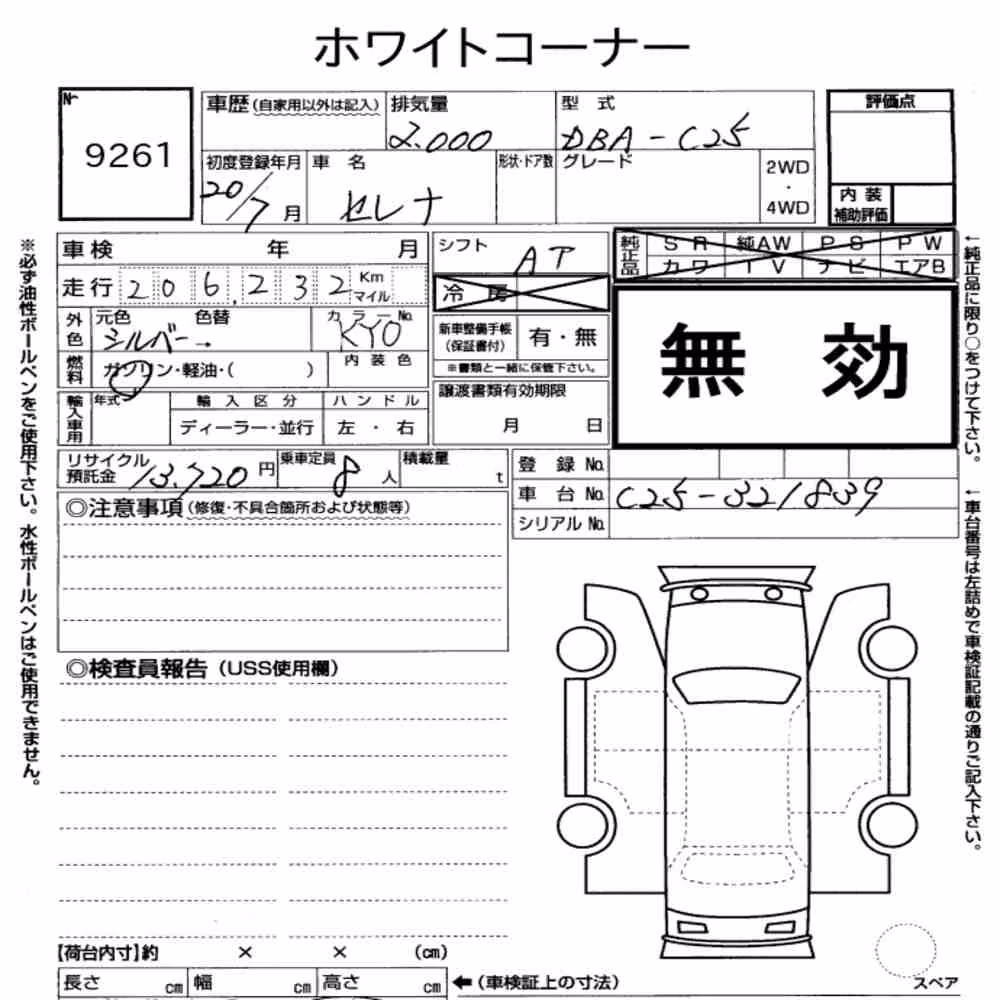 ホワイトコーナー
№ 9261
車歴(自家用以外は記入) 排気量 2.000 型式 DBA-C25
評価点
初度登録年月 20/7月 車名 セレナ 形状・ドア数 グレード 2WD・4WD
内装補助評価
車検 年 月 シフト AT
純正品 SR 純AW PS PW
カワ TV ナビ エアB
走行 206,232 Km マイル 冷房
外色 元色 シルバー 色替 カラーNo. KY0
新車整備手帳(保証書付) 有・無
※書類と一緒に保管下さい。
無効
燃料 ガソリン・軽油・( ) 内装色
譲渡書類有効期限
月 日
輸入車用 年式 輸入区分 ハンドル
ディーラー・並行 左・右
リサイクル預託金 13,720円 乗車定員 8人 積載量 t
登録No.
車台No. C25-321839
シリアルNo.
◎注意事項(修復・不具合箇所および状態等)
◎検査員報告(USS使用欄)
【荷台内寸】約 × × (cm)
長さ cm 幅 cm 高さ cm ←(車検証上の寸法)
スペア
※必ず油性ボールペンをご使用下さい。水性ボールペンはご使用できません。
←純正品に限り○をつけて下さい。
←車台番号は左詰めで車検証記載の通りご記入下さい。